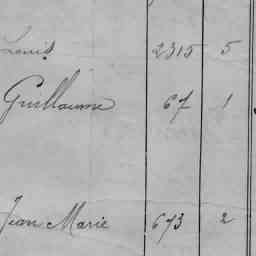 Louis 2315 5
Guillaume 67 1
Jean Marie 673 2